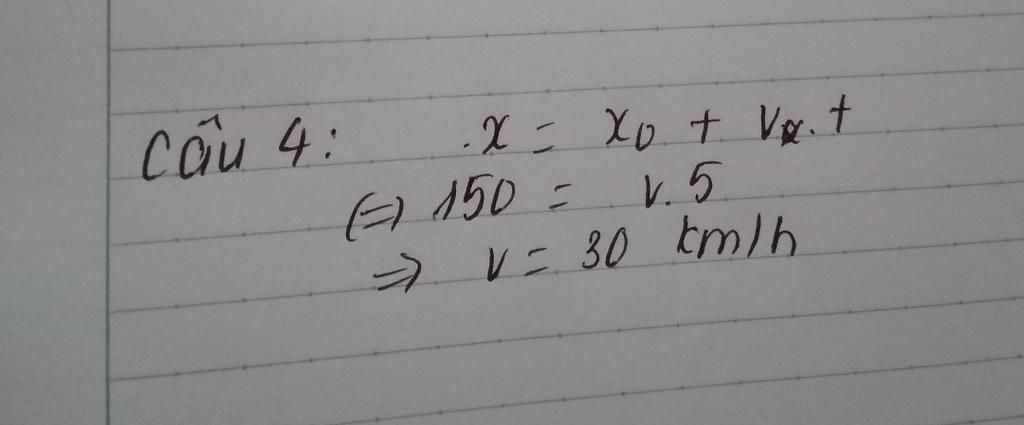 Câu 4: .x = x₀ + vₓ. t
(=) 150 = v. 5
=> v = 30 km/h